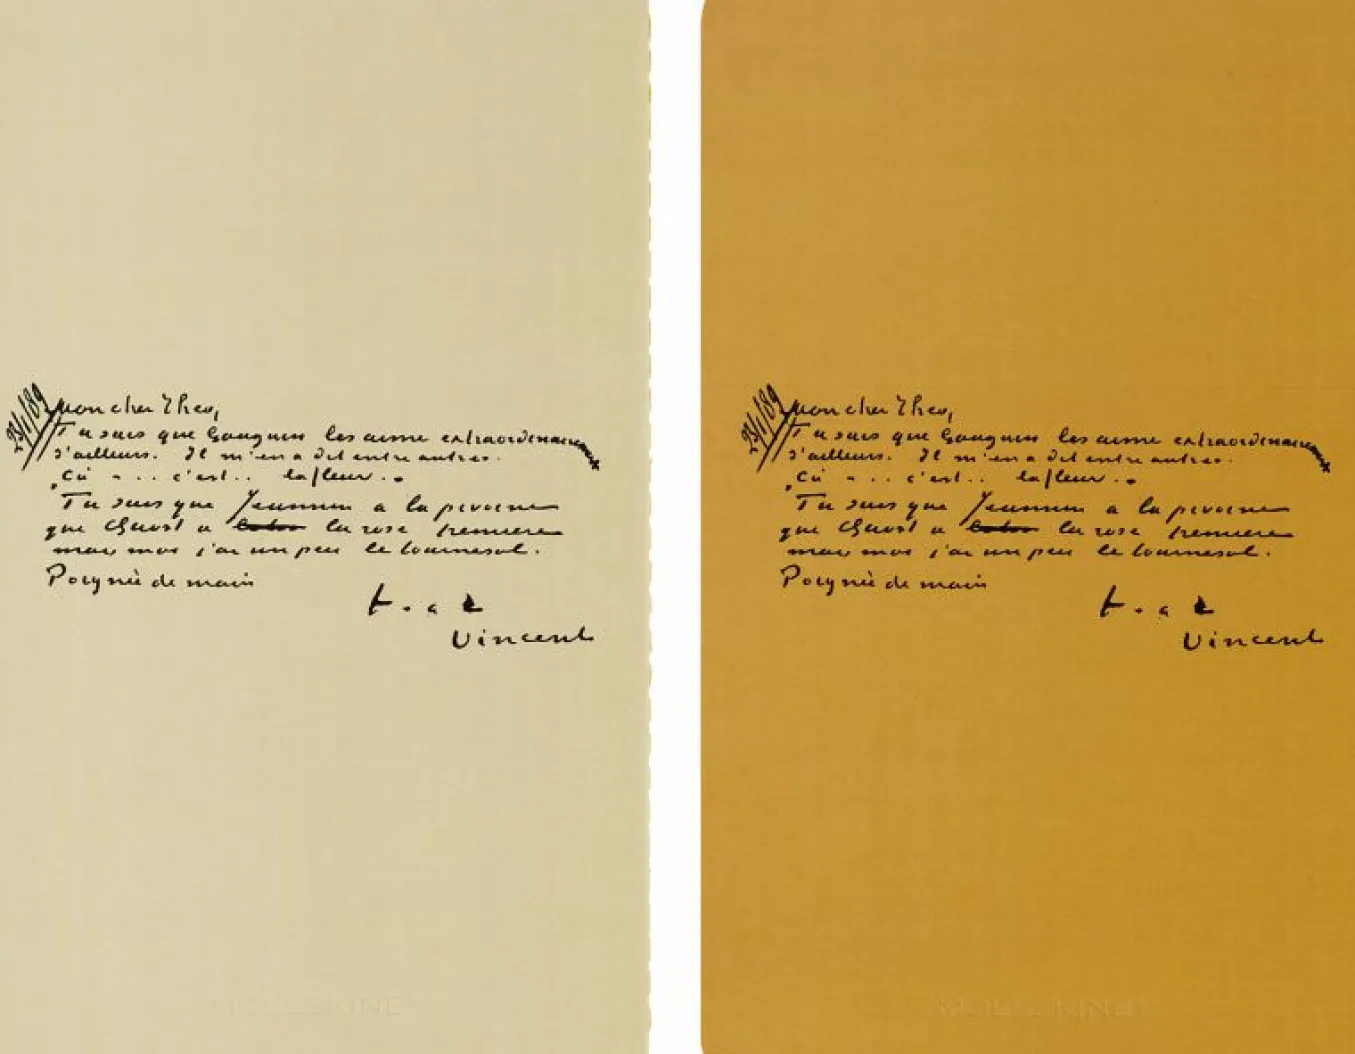 23/1/89
Mon cher Theo,
Tu sais que Gauguin les aime extraordinairement
d'ailleurs. Il m'en a dit entre autres.
„Ça - . . c'est . . la fleur. „
Tu sais que Jeannin a la pivoine
que Quost a la rose tremiere
mais moi j'ai un peu le tournesol.
Poignée de main
t. a t
Vincent
MOLESKINE
23/1/89
Mon cher Theo,
Tu sais que Gauguin les aime extraordinairement
d'ailleurs. Il m'en a dit entre autres.
„Ça - . . c'est . . la fleur. „
Tu sais que Jeannin a la pivoine
que Quost a la rose tremiere
mais moi j'ai un peu le tournesol.
Poignée de main
t. a t
Vincent
MOLESKINE